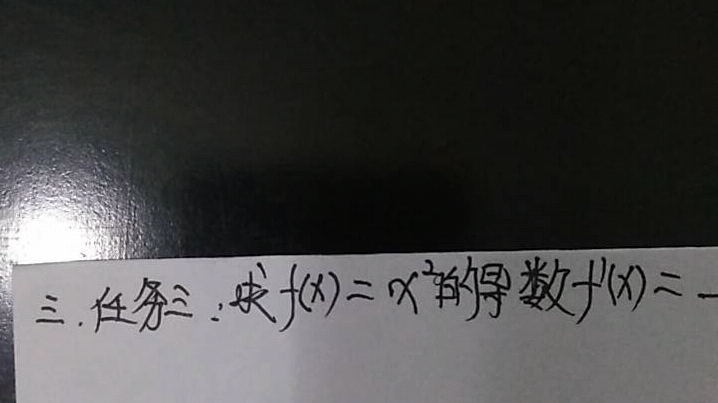 三.任务三:求f(x)=x²的导数f'(x)=_